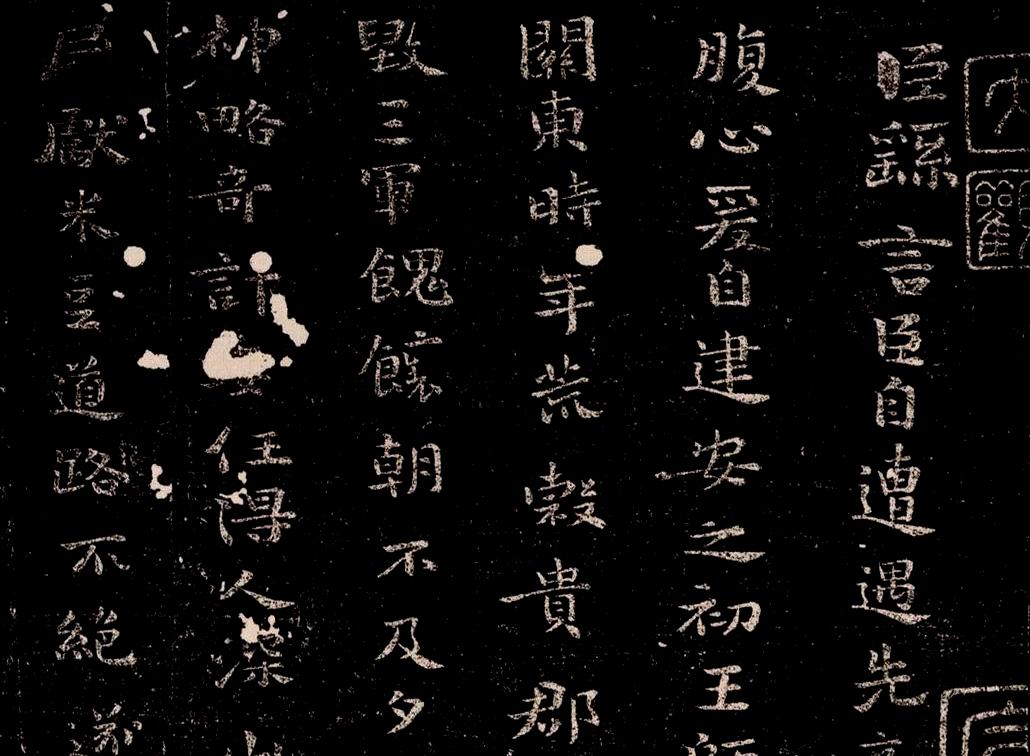 臣繇言臣自遭遇先
腹心爰自建安之初王師
關東時年荒穀貴郡
毀三軍餽饟朝不及夕
神略奇計委任得人深
戶獻米豆道路不絕遂